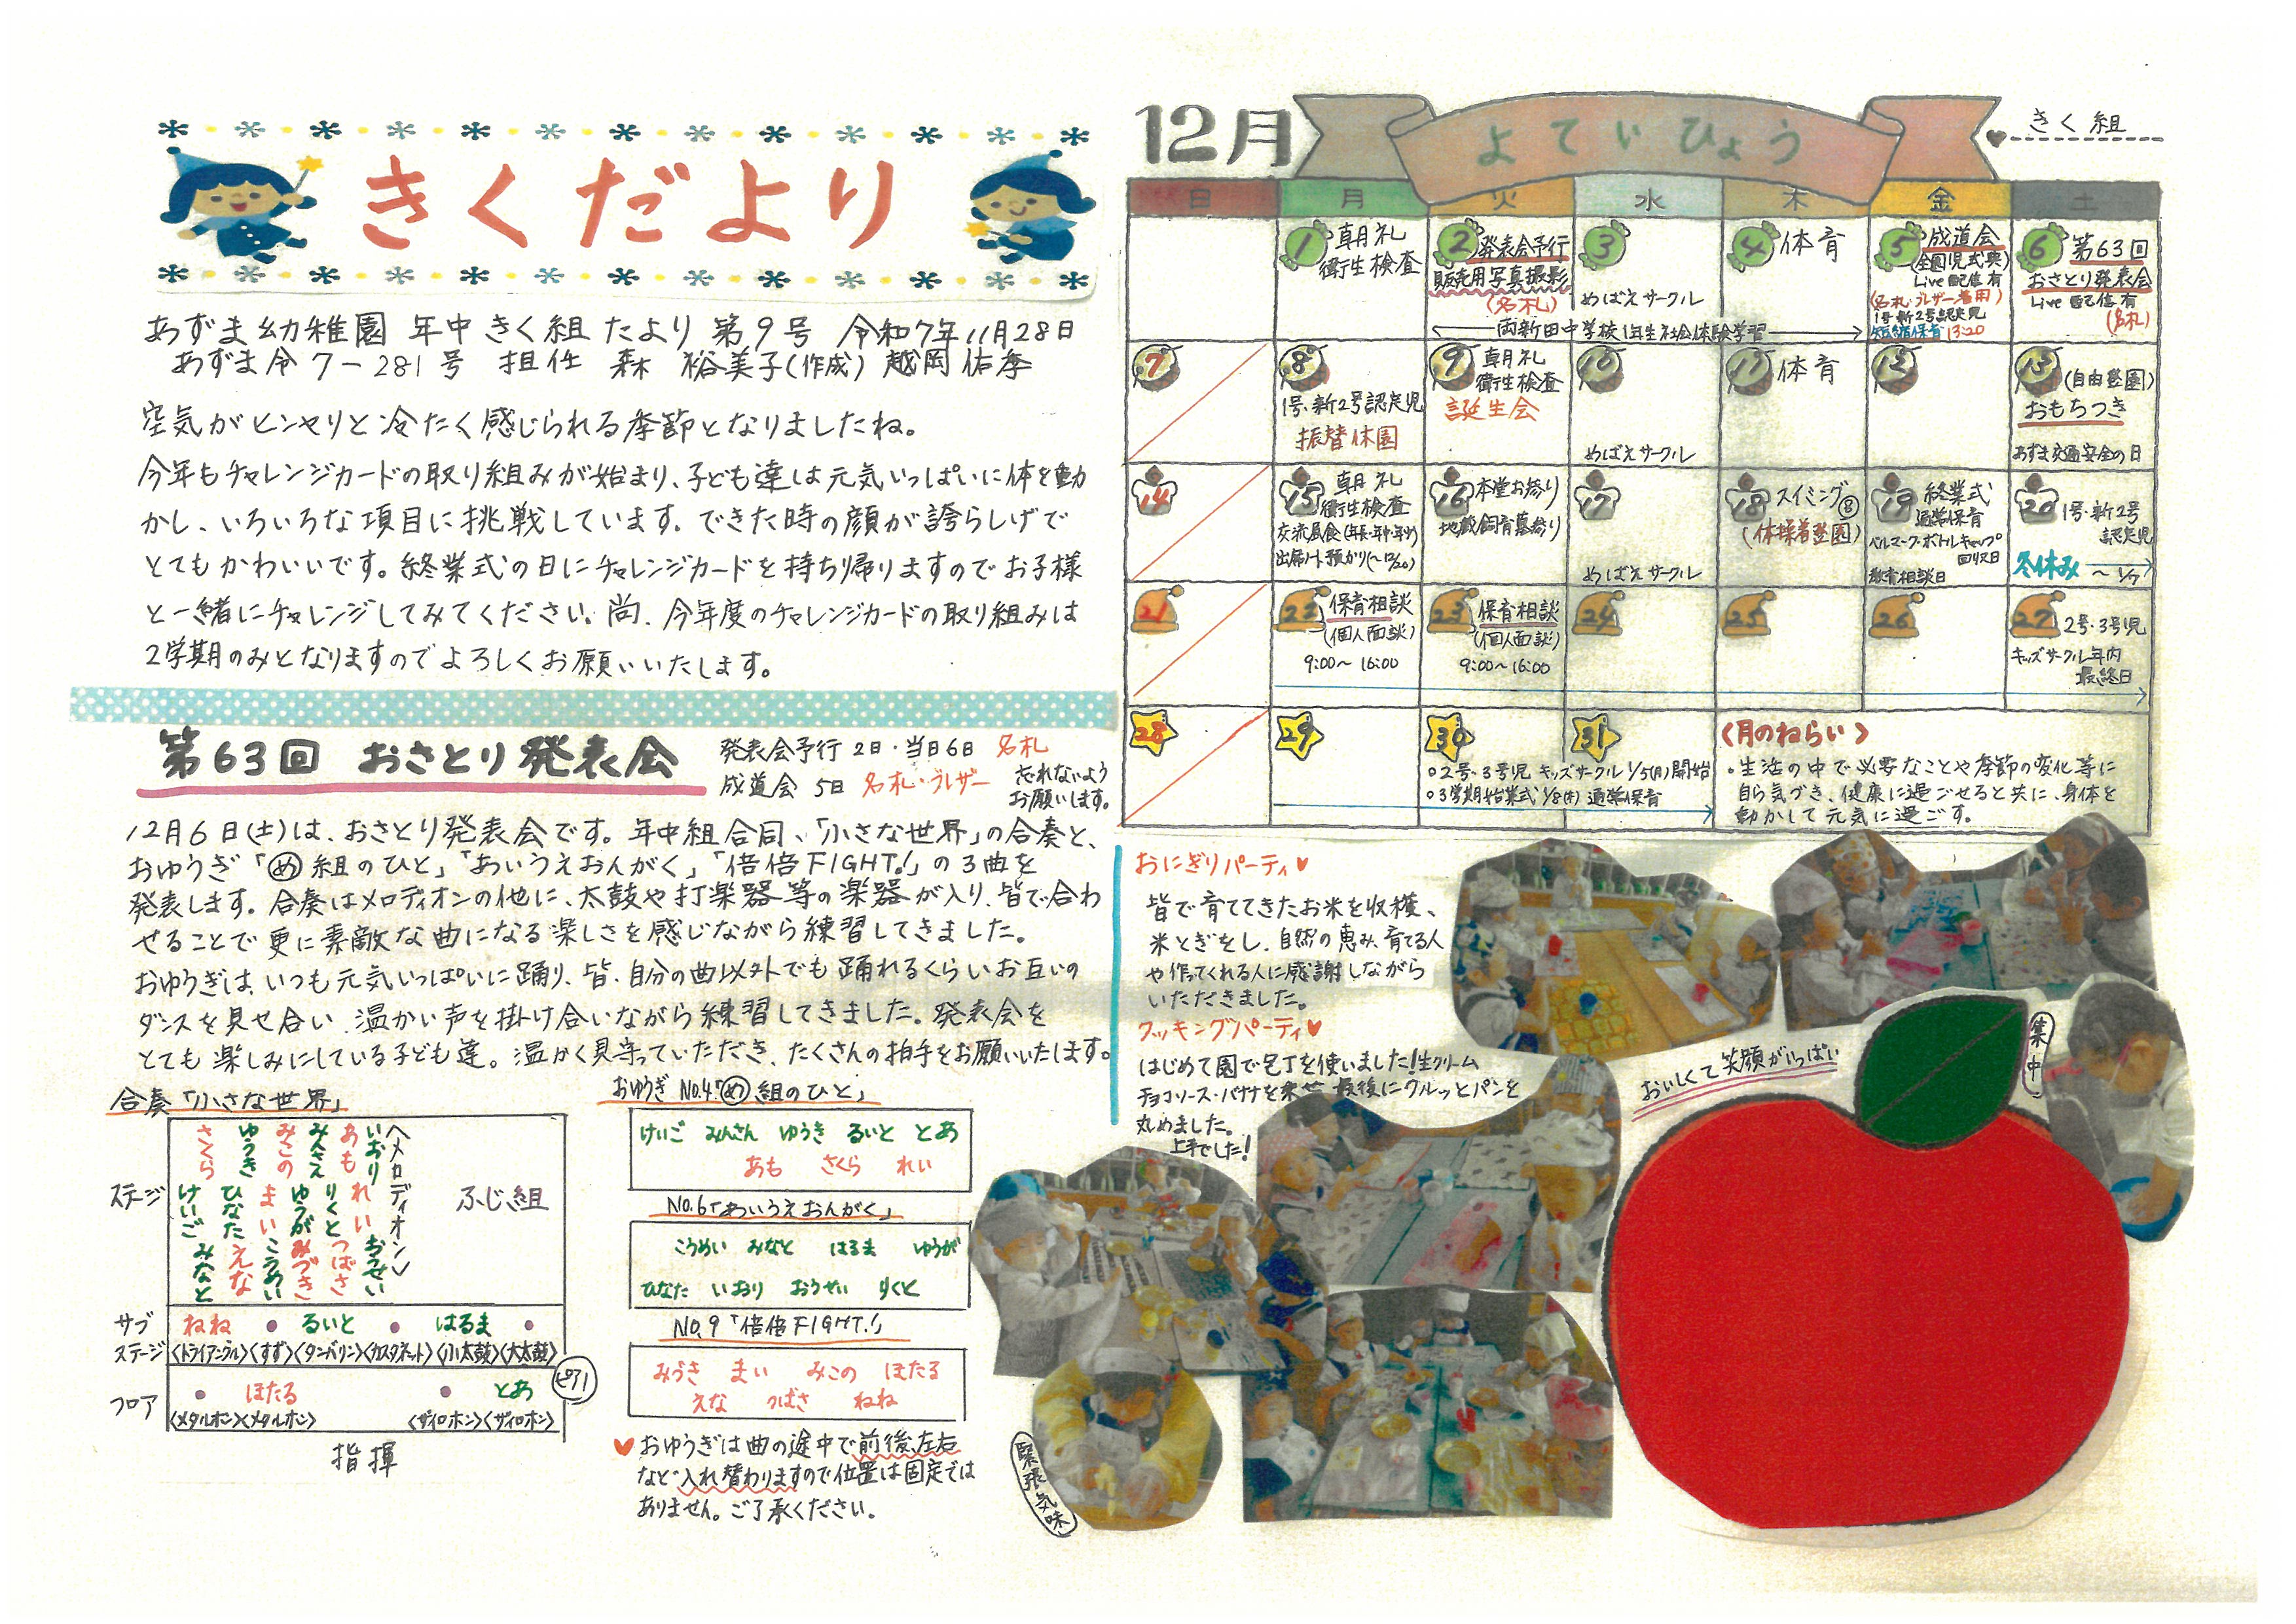 きくだより
あずま幼稚園 年中 きく組 たより 第9号 令和7年11月28日
あずま令7-281号 担任 森 裕美子(作成) 越岡 佑季
空気がヒンヤリと冷たく感じられる季節となりましたね。
今年もチャレンジカードの取り組みが始まり、子ども達は元気いっぱいに体を動
かし、いろいろな項目に挑戦しています。できた時の顔が誇らしげで
とてもかわいいです。終業式の日にチャレンジカードを持ち帰りますのでお子様
と一緒にチャレンジしてみてください。尚、今年度のチャレンジカードの取り組みは
2学期のみとなりますのでよろしくお願いいたします。
第63回 おさとり発表会
発表会予行 2日・当日6日 名札
成道会 5日 名札・ブレザー
忘れないよう
お願いします。
12月6日(土)は、おさとり発表会です。年中組合同、「小さな世界」の合奏と、
おゆうぎ「め組のひと」「あいうえおんがく」「倍倍FIGHT!」の3曲を
発表します。合奏はメロディオンの他に、太鼓や打楽器等の楽器が入り、皆で合わ
せることで更に素敵な曲になる楽しさを感じながら練習してきました。
おゆうぎは、いつも元気いっぱいに踊り、皆、自分の曲以外でも踊れるくらいお互いの
ダンスを見せ合い、温かい声を掛け合いながら練習してきました。発表会を
とても楽しみにしている子ども達。温かく見守っていただき、たくさんの拍手をお願いいたします。
合奏「小さな世界」
ステージ
〈メロディオン〉
いおり れい おうせい
あも りくと つばさ
みんさん ゆうが みづき
みこの まい こうめい
ゆうき ひなた えな
さくら けいご みなと
ふじ組
サブ
ステージ
ねね ● るいと ● はるま ●
〈トライアングル〉〈すず〉〈タンバリン〉〈カスタネット〉〈小太鼓〉〈大太鼓〉
フロア
● ほたる ● とあ
〈メタルホン〉〈メタルホン〉 〈ザイロホン〉〈ザイロホン〉
ピアノ
指揮
おゆうぎ No.4「め組のひと」
けいご みんさん ゆうき るいと とあ
あも さくら れい
No.6「あいうえおんがく」
こうめい みなと はるま ゆうが
ひなた いおり おうせい りくと
No.9「倍倍FIGHT!」
みづき まい みこの ほたる
えな つばさ ねね
♥おゆうぎは曲の途中で前後、左右
など入れ替わりますので位置は固定では
ありません。ご了承ください。
12月 よていひょう きく組
日 月 火 水 木 金 土
1 朝礼
衛生検査
2 発表会予行
販売用写真撮影
(名札)
3
めばえサークル
4 体育
←両新田中学校1年生社会体験学習→
5 成道会
(全園児式典)
Live配信有
(名札・ブレザー着用)
1号・新2号認定児
短縮保育 13:20
6 第63回
おさとり発表会
Live配信有
(名札)
7
8
1号・新2号認定児
振替休園
9 朝礼
衛生検査
誕生会
10
めばえサークル
11 体育
12
13 (自由登園)
おもちつき
あずま交通安全の日
14
15 朝礼
衛生検査
交流昼食(年長・年中・年少)
出席ノート預かり(~12/20)
16 本堂お参り
地蔵飼育墓参り
17
めばえサークル
18 スイミング⑧
(体操着登園)
19 終業式
通常保育
ベルマーク・ボトルキャップ
回収日
教育相談日
20 1号・新2号
認定児
冬休み
~1/7
21
22 保育相談
(個人面談)
9:00~16:00
23 保育相談
(個人面談)
9:00~16:00
24
25
26
27 2号・3号児
キッズサークル年内
最終日
28
29
30
31
○2号・3号児 キッズサークル 1/5(月)開始
○3学期始業式 1/8(木) 通常保育
〈月のねらい〉
・生活の中で必要なことや季節の変化等に
自ら気づき、健康に過ごせると共に、身体を
動かして元気に過ごす。
おにぎりパーティ♥
皆で育ててきたお米を収穫、
米とぎをし、自然の恵み、育てる人
や作ってくれる人に感謝しながら
いただきました。
クッキングパーティ♥
はじめて園で包丁を使いました!生クリーム
チョコソース・バナナを乗せ、最後にクルッとパンを
丸めました。
上手でした!
おいしくて笑顔がいっぱい
集中
緊張気味